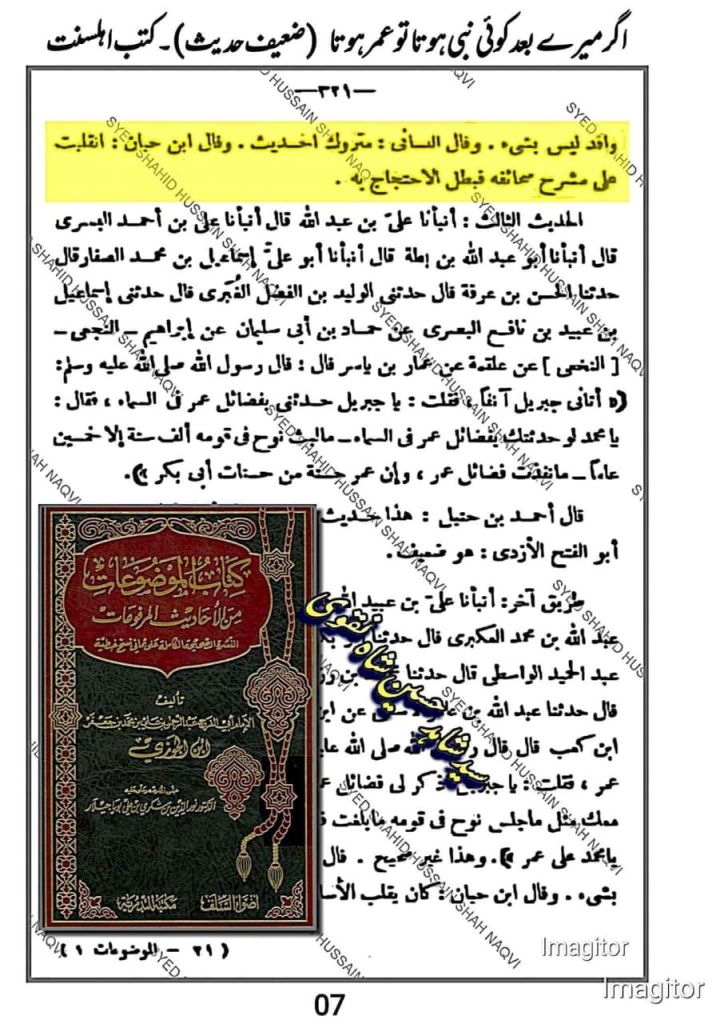 اگر میرے بعد کوئی نبی ہوتا تو عمر ہوتا (ضعیف حدیث)۔ کتب اہلسنت
—٣٢١—
واقد ليس بشىء . وقال النسائى : متروك الحديث . وقال ابن حبان : انقلبت
على مشرح صحائفه فبطل الاحتجاج به .
الحديث الثالث : أنبأنا علىّ بن عبد الله قال أنبأنا على بن أحمد البسرى
قال أنبأنا أبو عبد الله بن بطة قال أنبأنا أبو علىّ إسماعيل بن محمد الصفار قال
حدثنا الحسن بن عرفة قال حدثنى الوليد بن الفضل العُبرى قال حدثنى إسماعيل
بن عبيد بن نافع البصرى عن حماد بن أبى سليمان عن إبراهيم – النجمى –
[ النخعى ] عن علقمة عن عمار بن ياسر قال : قال رسول الله صلى الله عليه وسلم :
« أتانى جبريل آنفاً ، فقلت : يا جبريل حدثنى بفضائل عمر فى السماء ، فقال :
يا محمد لو حدثتك بفضائل عمر فى السماء – مالبث نوح فى قومه ألف سنة إلا خمسين
عاماً – مانفدت فضائل عمر ، وإن عمر حسنة من حسنات أبى بكر » .
قال أحمد بن حنبل : هذا حديث
أبو الفتح الأزدى : هو ضعيف .
طريق آخر : أنبأنا علىّ بن عبيد الله
عبد الله بن محمد العكبرى قال حدثنا
عبد الحميد الواسطى قال حدثنا
قال حدثنا عبد الله بن
ابن كعب قال قال صلى الله
عمر ، فقلت : يا جبريل اذكر لى فضائل
معك مثل ماجلس نوح فى قومه مابلغت
يامحمد على عمر » . وهذا غير صحيح . قال
بشىء . وقال ابن حبان : كان يقلب الأسا
( ٢١ – الموضوعات ١ )
كتاب الموضوعات
من الأحاديث المرفوعات
تأليف
ابن الجوزي
أضواء السلف
مكتبة التدمرية
سید شاہد حسین شاہ نقوی
SYED SHAHID HUSSAIN SHAH NAQVI
Imagitor
Imagitor
07